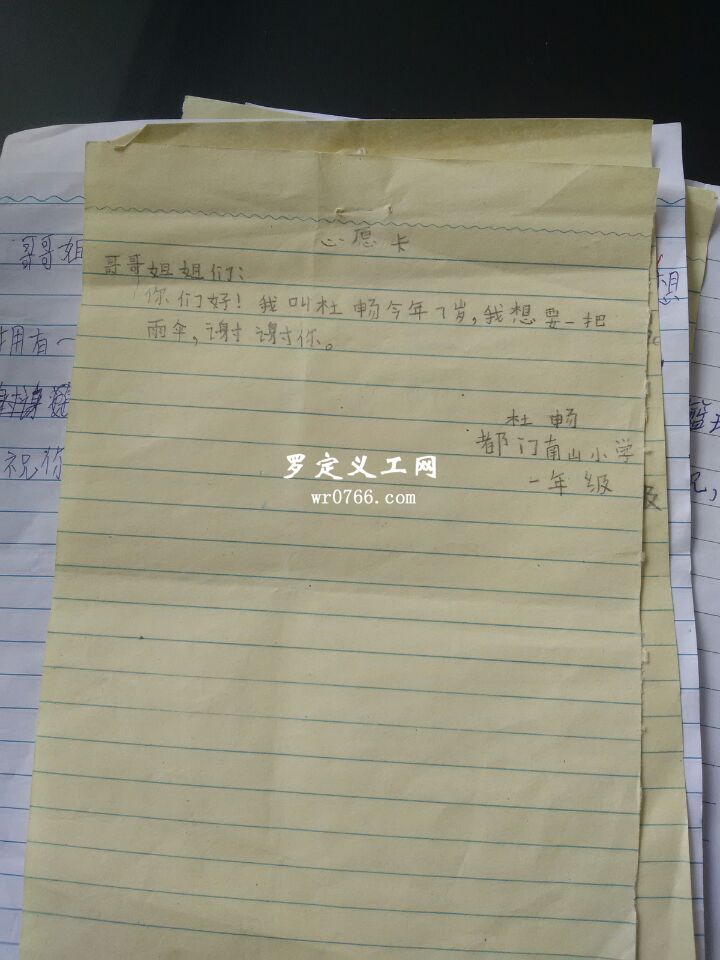 心愿卡
哥哥姐姐们:
你们好!我叫杜畅今年7岁,我想要一把
雨伞,谢谢你。
杜畅
都门南山小学
一年级
罗定义工网
wr0766.com
哥哥姐
想
拥有一
祝你